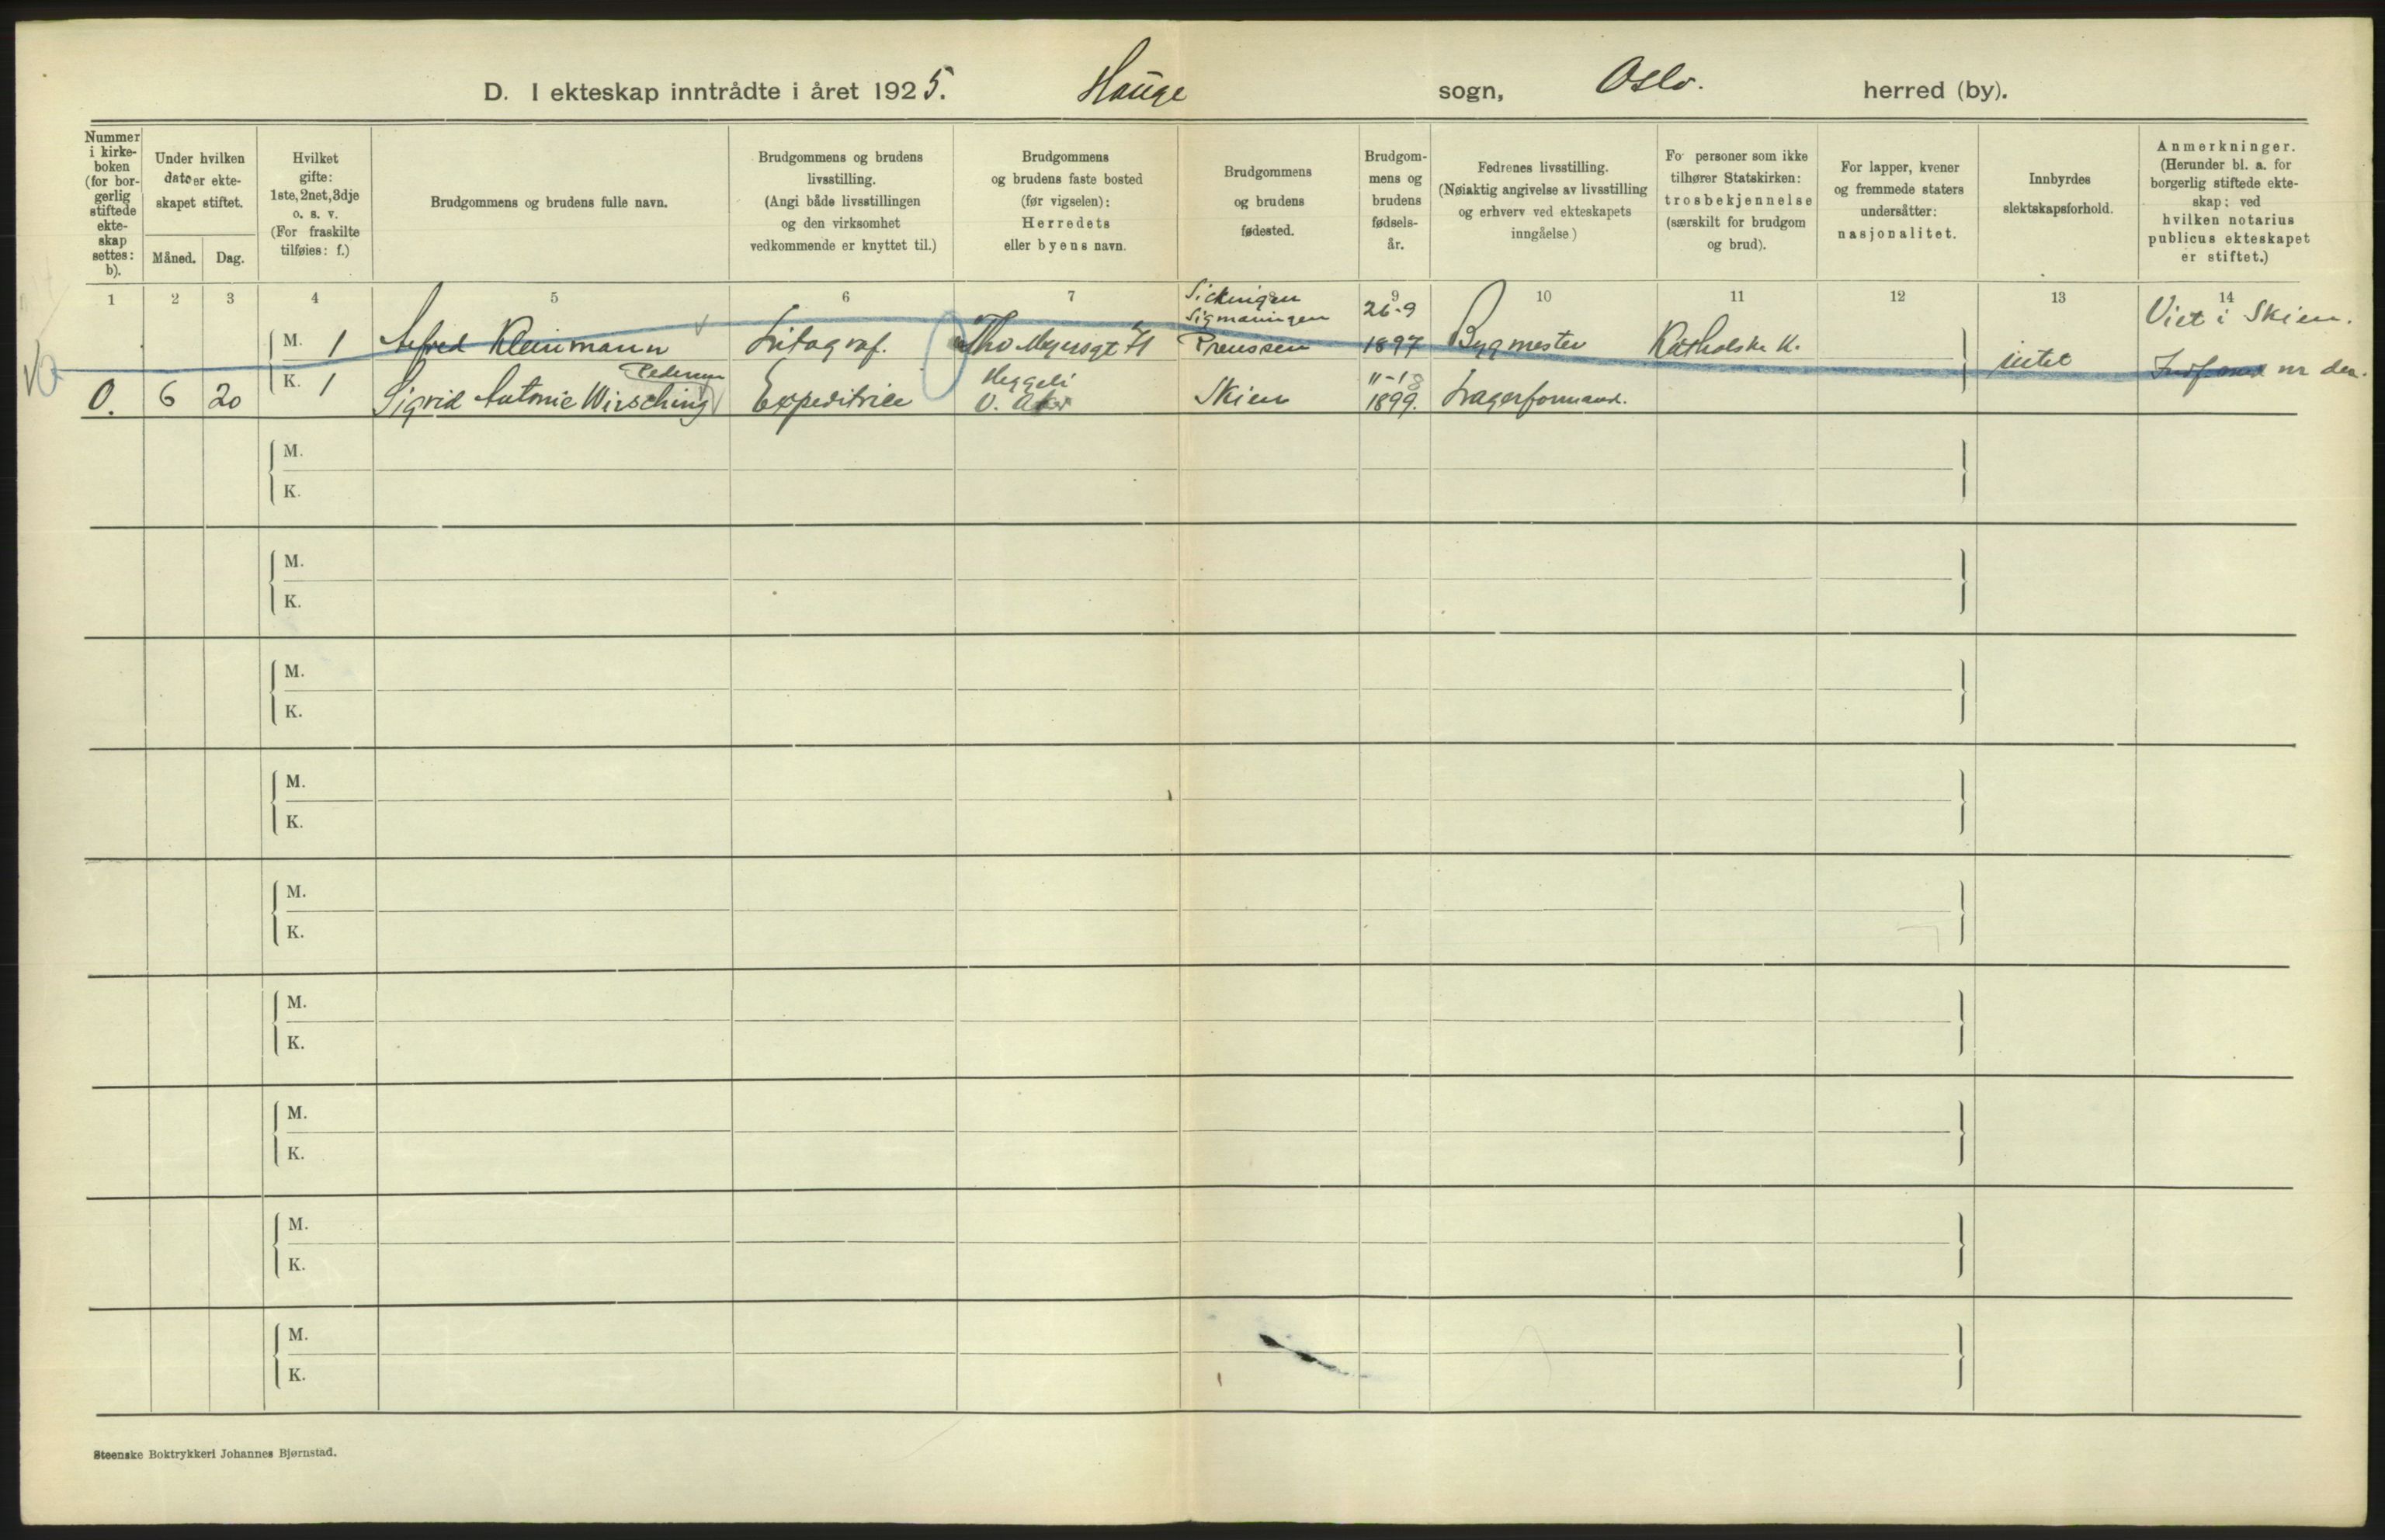 D. I ekteskap inntrådte i året 1925. Hauge sogn, Oslo. herred (by).
Nummer i kirke-boken (for bor-gerlig stiftede ekte-skap settes: b).
Under hvilken dato er ekte-skapet stiftet.
Måned. Dag.
Hvilket gifte: 1ste, 2net, 3dje o. s. v. (For fraskilte tilføies: f.)
Brudgommens og brudens fulle navn.
Brudgommens og brudens livsstilling. (Angi både livsstillingen og den virksomhet vedkommende er knyttet til.)
Brudgommens og brudens faste bosted (før vigselen): Herredets eller byens navn.
Brudgommens og brudens fødested.
Brudgom-mens og brudens fødsels-år.
Fedrenes livsstilling. (Nøiaktig angivelse av livsstilling og erhverv ved ekteskapets inngåelse)
Fo personer som ikke tilhører Statskirken: trosbekjennelse (særskilt for brudgom og brud).
For lapper, kvener og fremmede staters undersåtter: nasjonalitet.
Innbyrdes slektskapsforhold.
Anmerkninger. (Herunder bl. a. for borgerlig stiftede ekte-skap: ved hvilken notarius publicus ekteskapet er stiftet.)
1 2 3 4 5 6 7 8 9 10 11 12 13 14
Sickingen
Sigmaringen 26-9 Viet i Skien.
M. 1 Alfred Kleinmann Litograf. Tho Meyersgt 71 Preussen 1897 Bygmester Katholske K.
intet
Pedersen Heggeli 11-18
O. 6 20 K. 1 Sigrid Antonie Wirsching Expeditrice V. Aker Skien 1899. Lagerformand.
M.
K.
M.
K.
M.
K.
M.
K.
M.
K.
M.
K.
M.
K.
M.
K.
M.
K.
Steenske Boktrykkeri Johannes Bjørnstad.